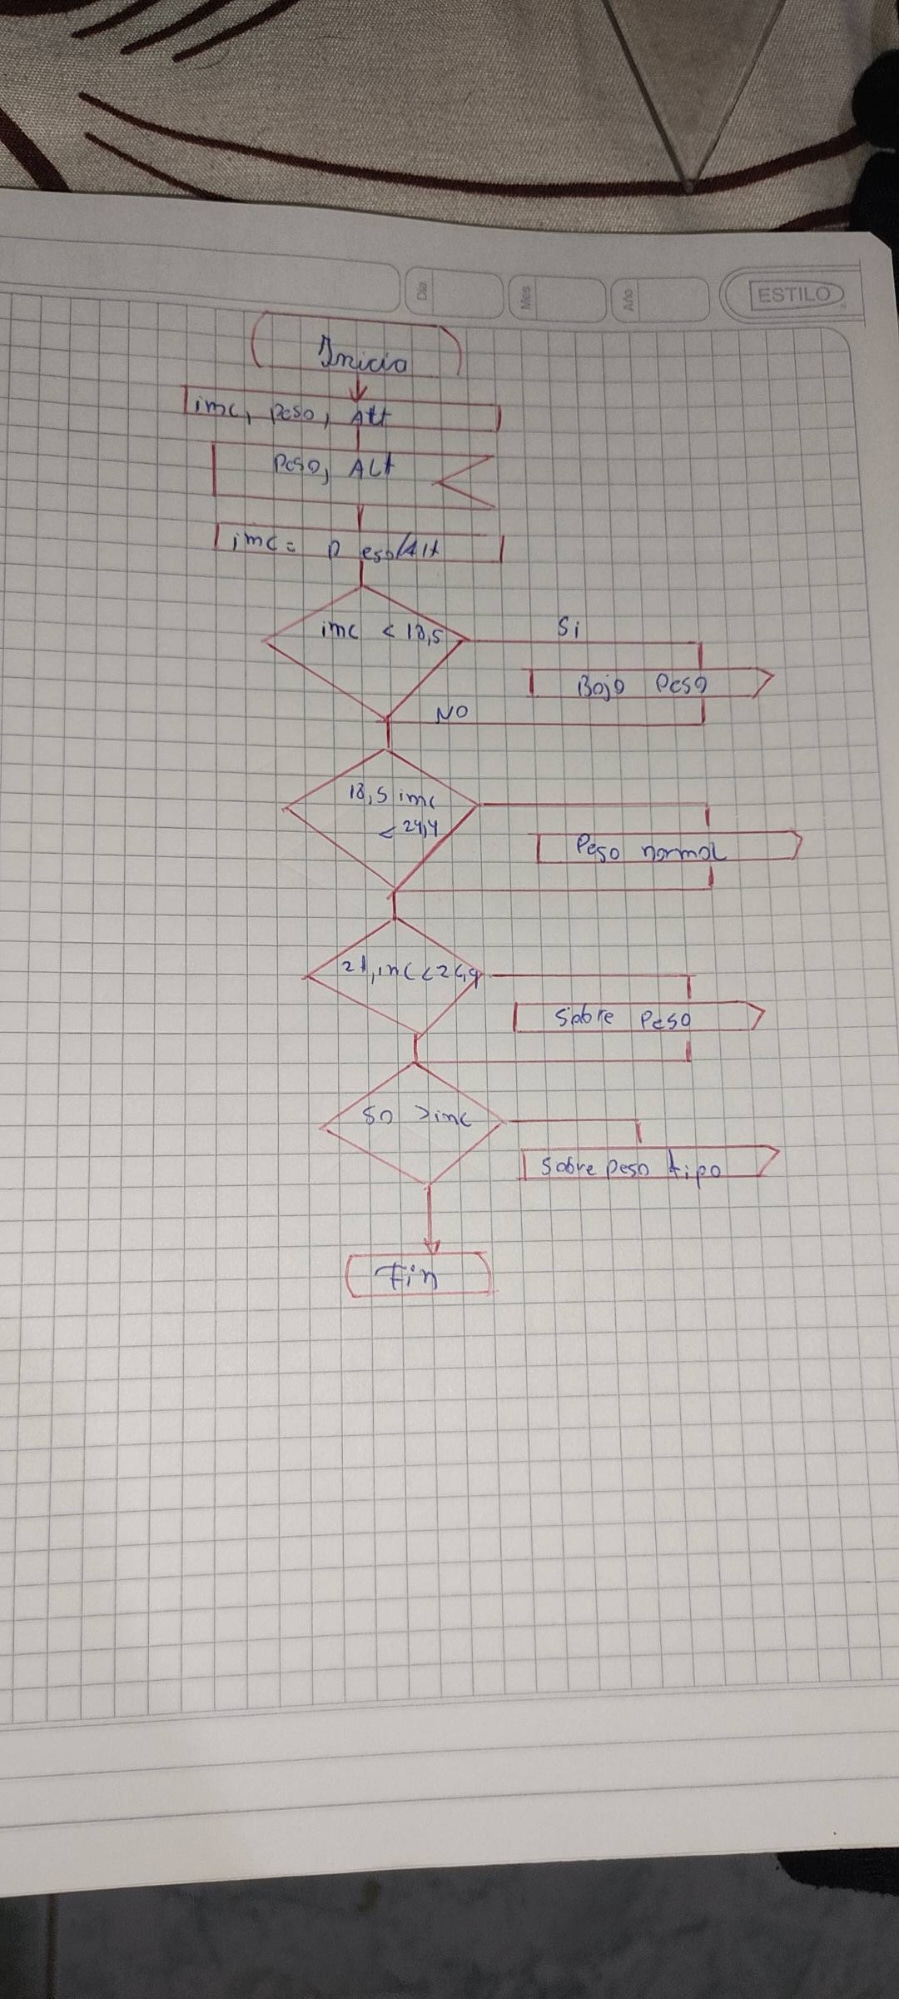 Dia Mes Año ESTILO
Inicio
imc, peso, Alt
peso, Alt
imc = peso/Alt
imc < 18,5
Si
Bajo Peso
NO
18,5 imc
< 24,4
Peso normal
inc <
Sobre Peso
50 > inc
Sobre peso tipo
Fin